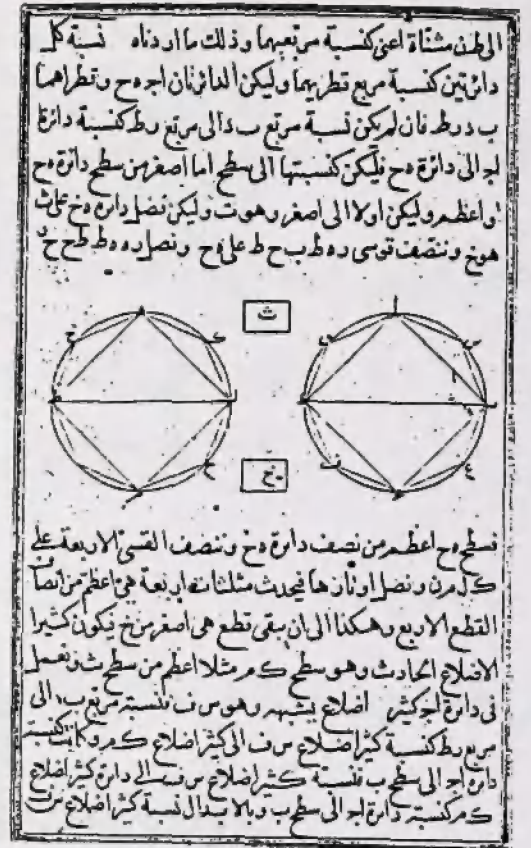 الى طن مثناة اعنى كنسبة مربعيهما وذلك ما اردناه نسبة كل
دائرتين كنسبة مربع قطريهما وليكن الدائرتان اجـ هح وقطراهما
ب د رط فان لم يكن نسبة مربع ب د الى مربع رط كنسبة دائرة
اجـ الى دائرة هح فليكن كنسبتها الى سطح اما اصغر من سطح دائرة هح
او اعظم وليكن اولا الى اصغر وهو ث وليكن فضل دائرة هح على ث
هو خ وننصف قوسى ره ط على ح ونصل ره ه ط ط ح
ث
خ
فسطح هح اعظم من نصف دائرة هح وننصف القسى الاربعة على
ك ل م ن ونصل اوتارها فيحدث مثلثات اربعة هى اعظم من انصاف
القطع الاربع وهكذا الى ان يبقى قطع هى اصغر من خ فيكون كثير
الاضلاع الحادث وهو سطح ك م مثلا اعظم من سطح ث ونعمل
فى دائرة اجـ كثير اضلاع يشبهه وهو س ف فنسبة مربع ب د الى
مربع رط كنسبة كثير اضلاع س ف الى كثير اضلاع ك م وكانت كنسبة
دائرة اجـ الى سطح ث فنسبة كثير اضلاع س ف الى كثير اضلاع
ك م كنسبة دائرة اجـ الى سطح ث وبالابدال نسبة كثير اضلاع س ف